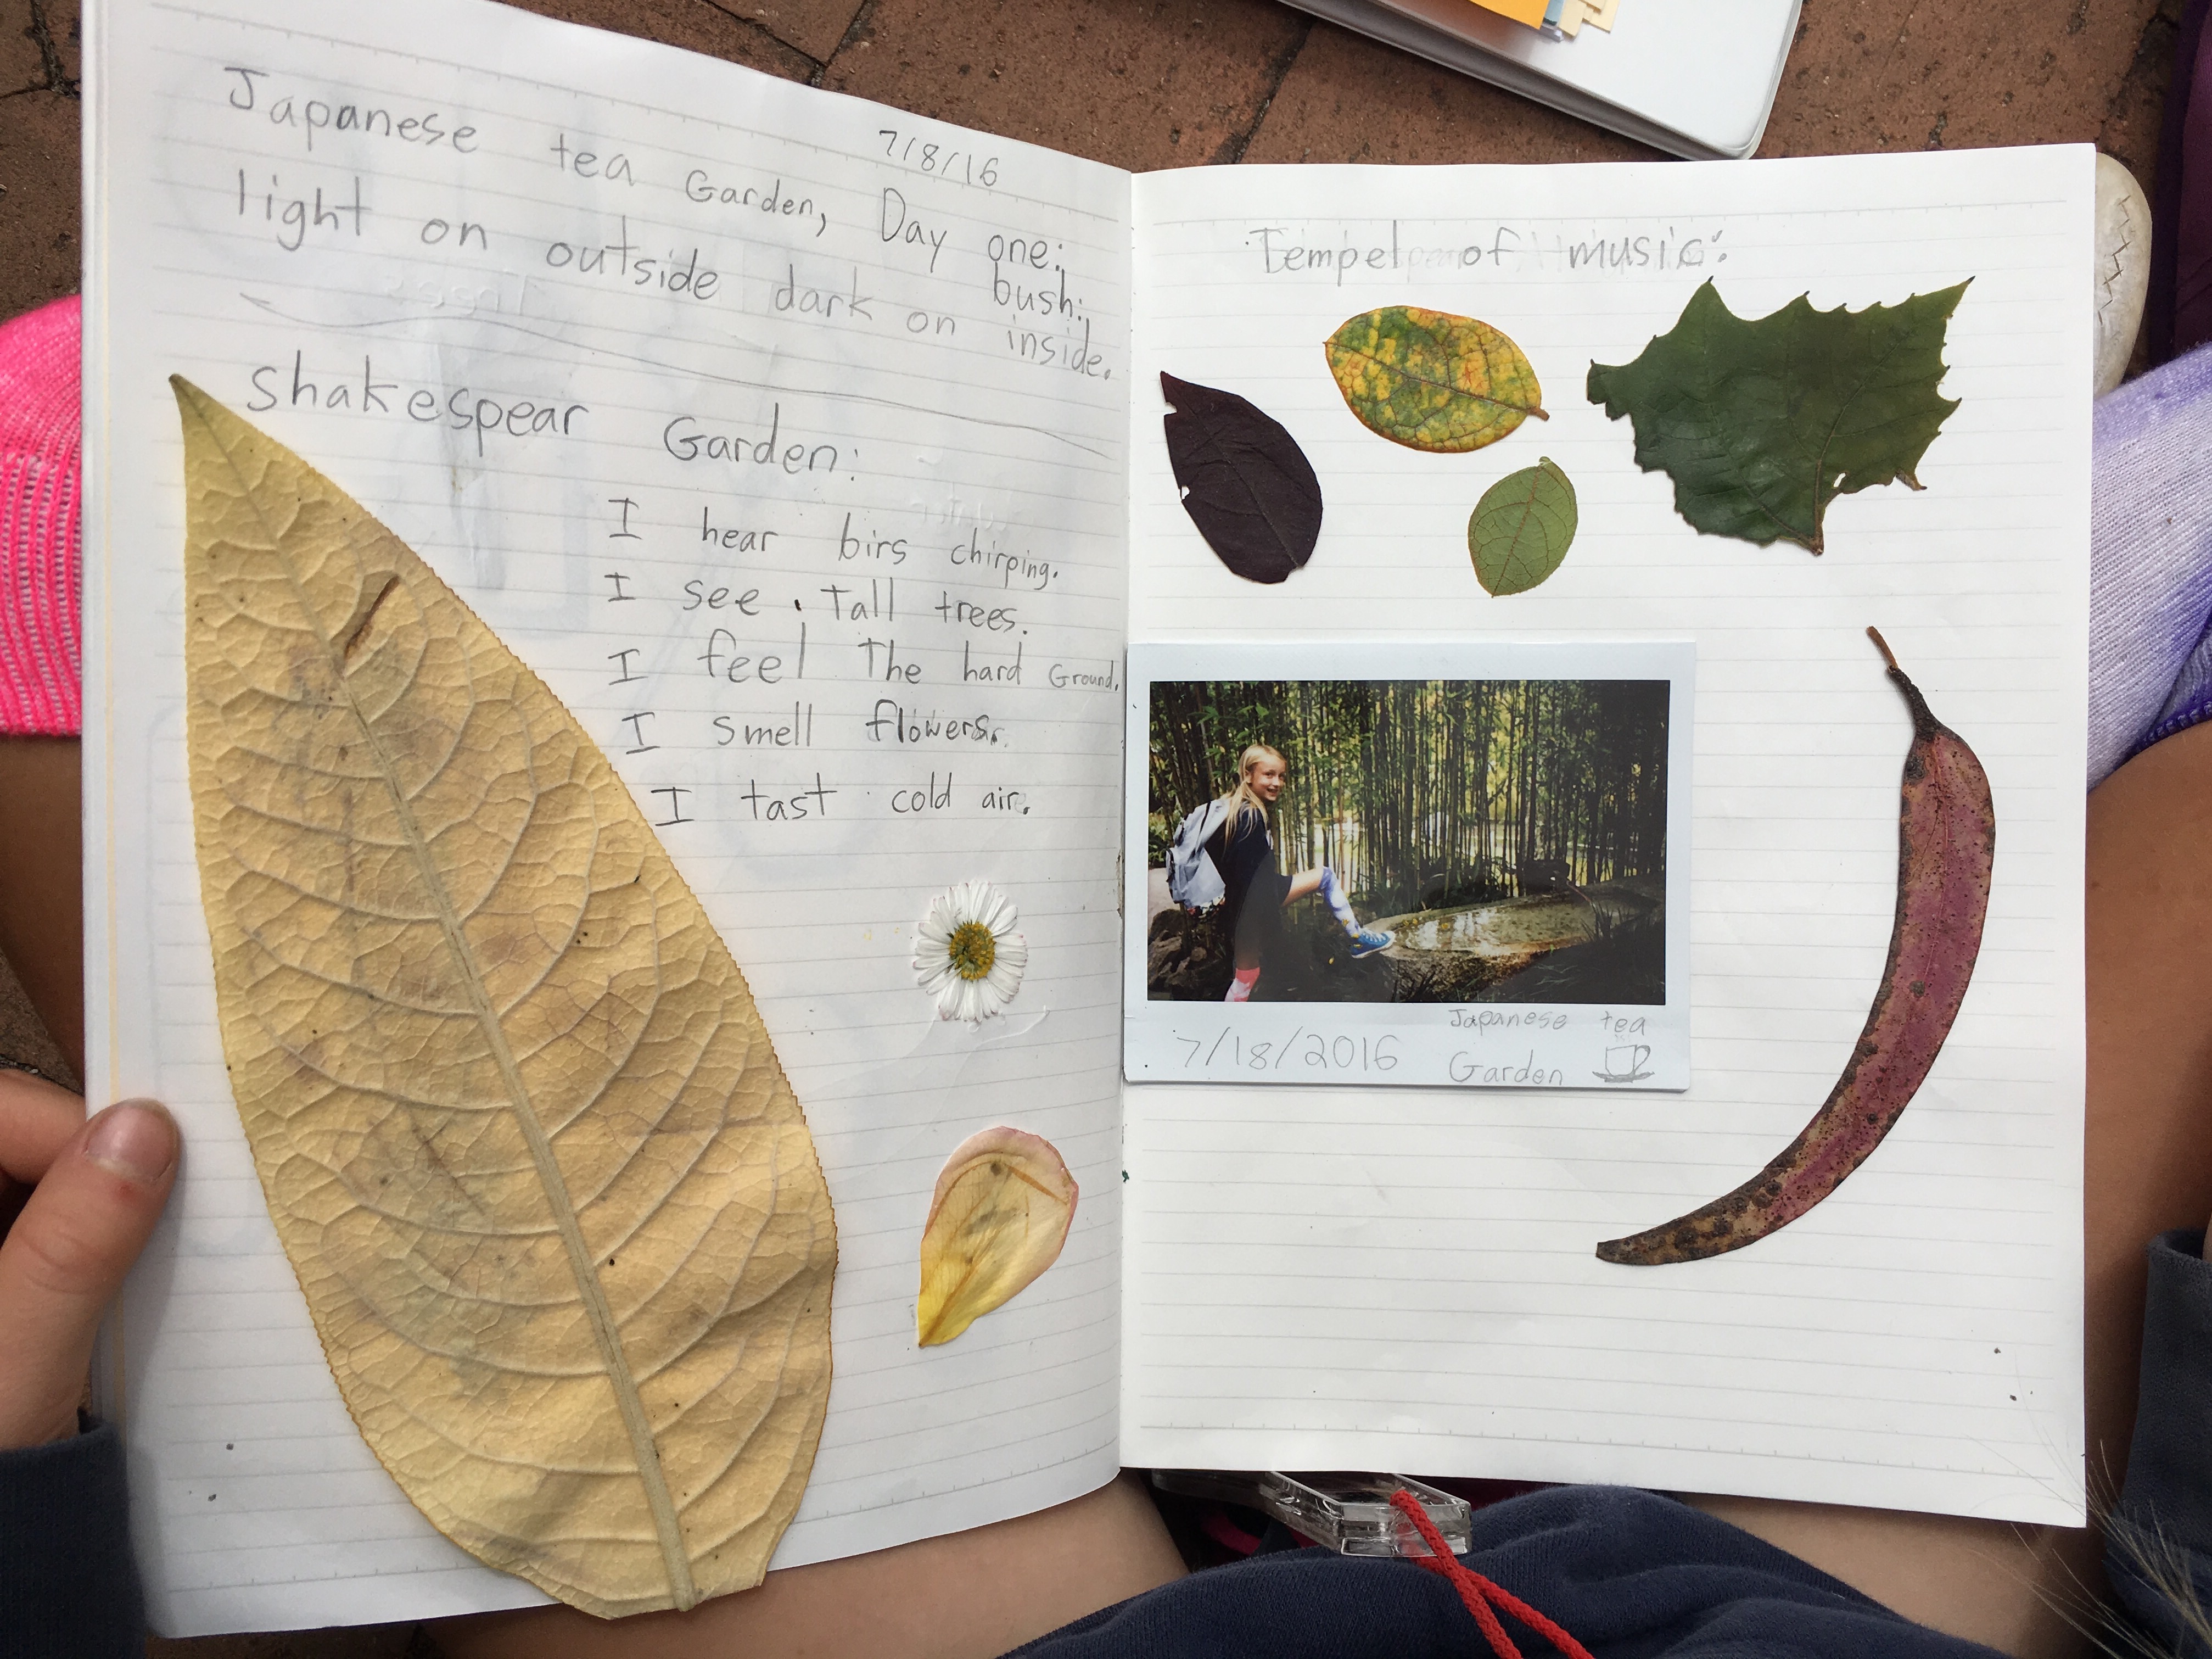 7/8/16
Japanese tea Garden, Day one:
light on outside dark on inside. bush:
Shakespear Garden:
I hear birs chirping.
I see . Tall trees.
I feel The hard Ground.
I smell flowers.
I tast cold air.
Tempel of music:
7/18/2016 Japanese tea
Garden